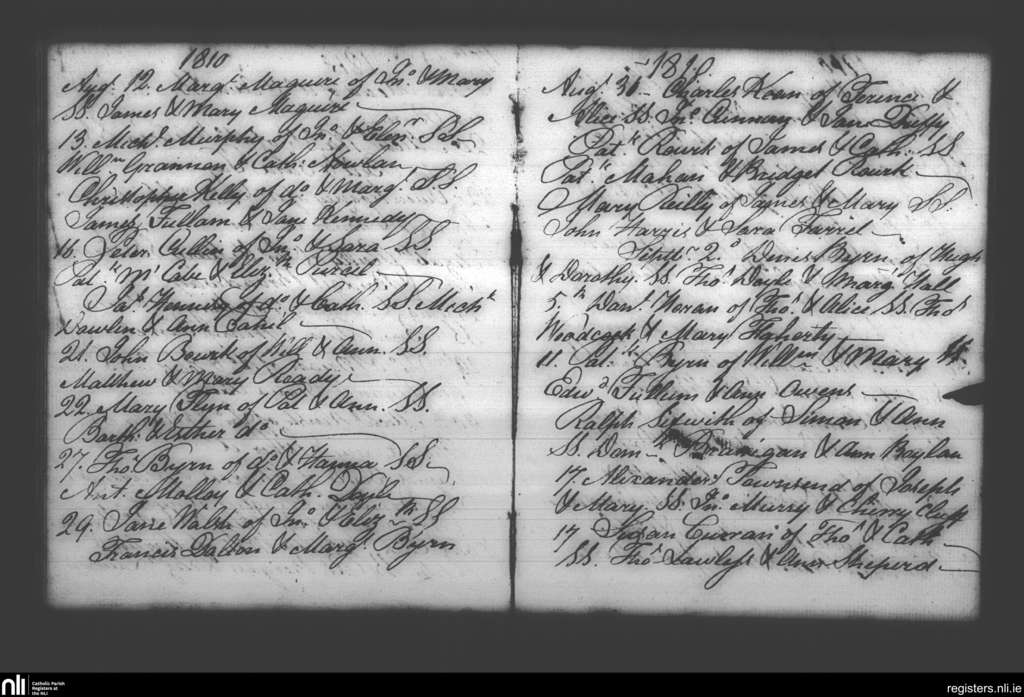 1810
Augt 12. Margt Maguire of Jno & Mary
SS. James & Mary Maguire
13. Michl Murphy of Jno & Elenr SS
Willm Grannon & Cath: Nowlan
Christopher Kelly of do & Margt SS.
James Fullam & Jane Kennedy
16. Peter Cullin of Jno & Sara SS
Patk McCabe & Elizth
Patk of do & Cath: SS Michl
Nowlen & Ann Cahil
21. John Bourk of Will & Ann. SS.
Matthew & Mary Ready
22. Mary Flyn of Pat & Ann. SS.
Barthw & Esther do
27. Tho. Byrn of do & Hanna SS.
Ant. Molloy & Cath. Doyle
29. Jane Walsh of Jno & Elizth SS
Francis Dalton & Margt Byrn
1810
Augt 31 Charles Kean of Terence &
Alice SS. Jno & Jane Duffy
Patk Rourk of James & Cath: SS
Patk Mahon & Bridget Rourk
Mary Reilly of James & Mary SS.
John Harris & Sara Farrel
Septbr 2o Denis Byrn of Hugh
& Dorothy. SS. Thos Doyle & Margt Hall
5th Danl Horan of Thos & Alice SS. Thos
Woodcock & Mary Flaherty
11. Patk Byrn of Willm & Mary SS.
Edwd Fullum & Ann Owens
Ralph of Simon & Ann
SS. Domk Branigan & Ann Boylan
17. Alexander Townsend of Joseph
& Mary. SS. Jno Murry & Cherry Cluff
17 Susan Curran of Thos & Cath
SS. Thos Lawless & Ann Sheperd
nli
Catholic Parish
Registers at
the NLI
registers.nli.ie